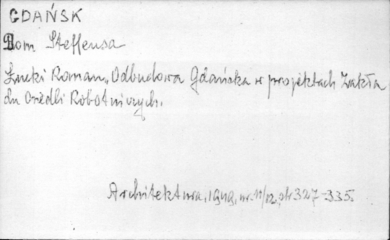 GDAŃSK
Dom Steffensa
Łucki Roman, Odbudowa Gdańska w projektach Zakła
du Osiedli Robotniczych.
Architektura, 1949, nr. 11/12, str 327-335.